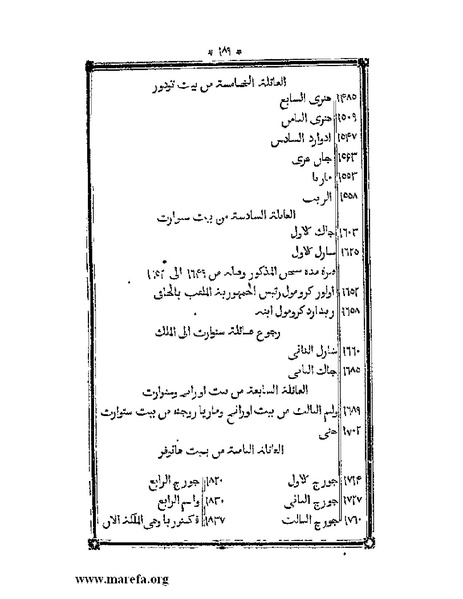 * ٢٨٩ *
العائلة الخامسة من بيت تودور
١٤٨٥ هنري السابع
١٥٠٩ هنري الثامن
١٥٤٧ ادوارد السادس
١٥٦٣ جان غري
١٥٥٣ ماريا
١٥٥٨
العائلة السادسة من بيت ستوارت
١٦٠٣ جاك الاول
١٦٢٥ شارل الاول
مدة سجن المذكور وقتله من ١٦٤٩ الى
١٦٥٢ اولور كرومول رئيس الجمهورية الملقب بالحامي
١٦٥٨ ريدارد كرومول ابنه
رجوع عائلة ستوارت الى الملك
١٦٦٠ شارل الثاني
١٦٨٥ جاك الثاني
العائلة السابعة من بيت اورانج وستوارت
١٦٨٩ وليم الثالث من بيت اورانج وماريا زوجته من بيت ستوارت
١٧٠٢ حني
العائلة الثامنة من بيت هانوفر
١٧١٤ جورج الاول ١٨٢٠ جورج الرابع
١٧٢٧ جورج الثاني ١٨٣٠ وليم الرابع
١٧٦٠ جورج الثالث ١٨٣٧ فكتوريا وهي الملكة الان
www.marefa.org